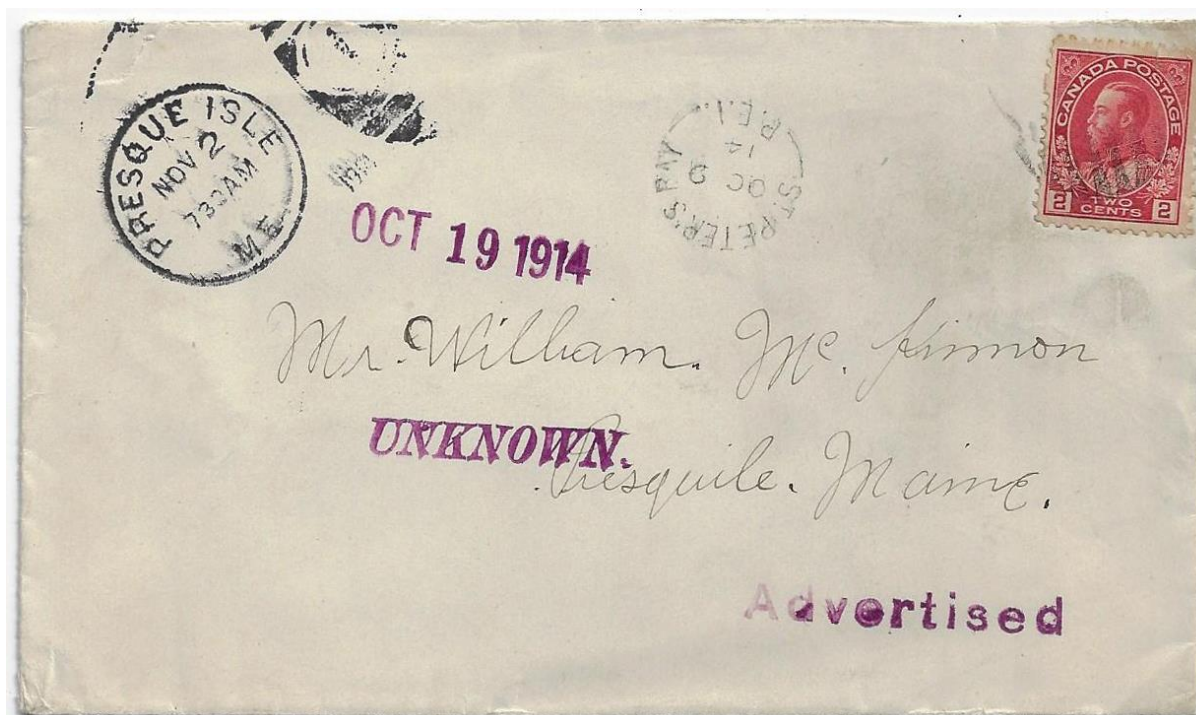 PRESQUE ISLE
NOV 2
730AM
ME.
ST. PETER'S BAY
OC 9
14
P.E.I.
CANADA POSTAGE
2 TWO CENTS 2
OCT 19 1914
Mr. William. Mc. Kinnon
UNKNOWN.
Presquile. Maine.
Advertised